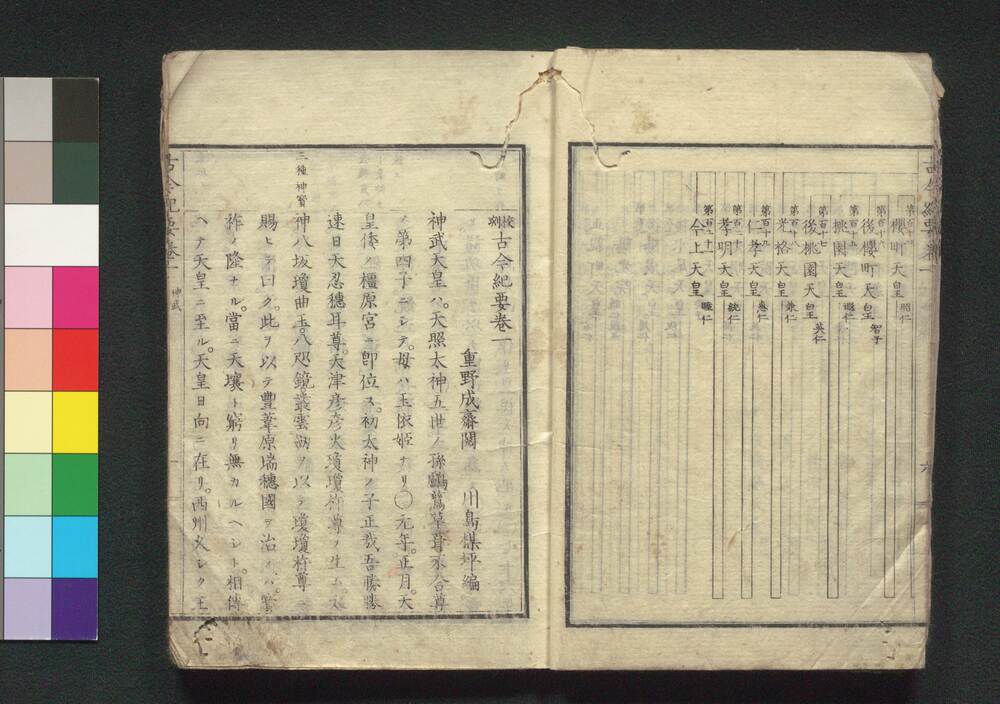 櫻町天皇 昭仁
後櫻町天皇 智子
桃園天皇 遐仁
第百十七
後桃園天皇 英仁
第百十八
光格天皇 兼仁
第百十九
仁孝天皇 惠仁
第百二十
孝明天皇 統仁
第百二十一
今上天皇 睦仁
校刻古今紀要卷一
重野成齋閲 川島楳坪編
神武天皇ハ。天照太神五世ノ孫鸕鷀草葺不合尊
ノ第四子ニシテ。母ハ玉依姬ナリ〇元年。正月。大
皇倭ノ橿原宮ニ即位ス。初太神ノ子正哉吾勝勝
速日天忍穗耳尊。天津彦彦火瓊瓊杵尊ヲ生ム。太
三種神寳
神八坂瓊曲玉。八咫鏡叢雲劔ヲ以テ瓊瓊杵尊ニ
賜ヒテ曰ク。此ヲ以テ豐葦原瑞穗國ヲ治メハ。寳
祚ノ隆ナル。當ニ天壤ト窮リ無カルヘシト。相傳
ヘテ天皇ニ至ル。天皇日向ニ在リ。西州久シク王
古今紀要卷一 神武 一